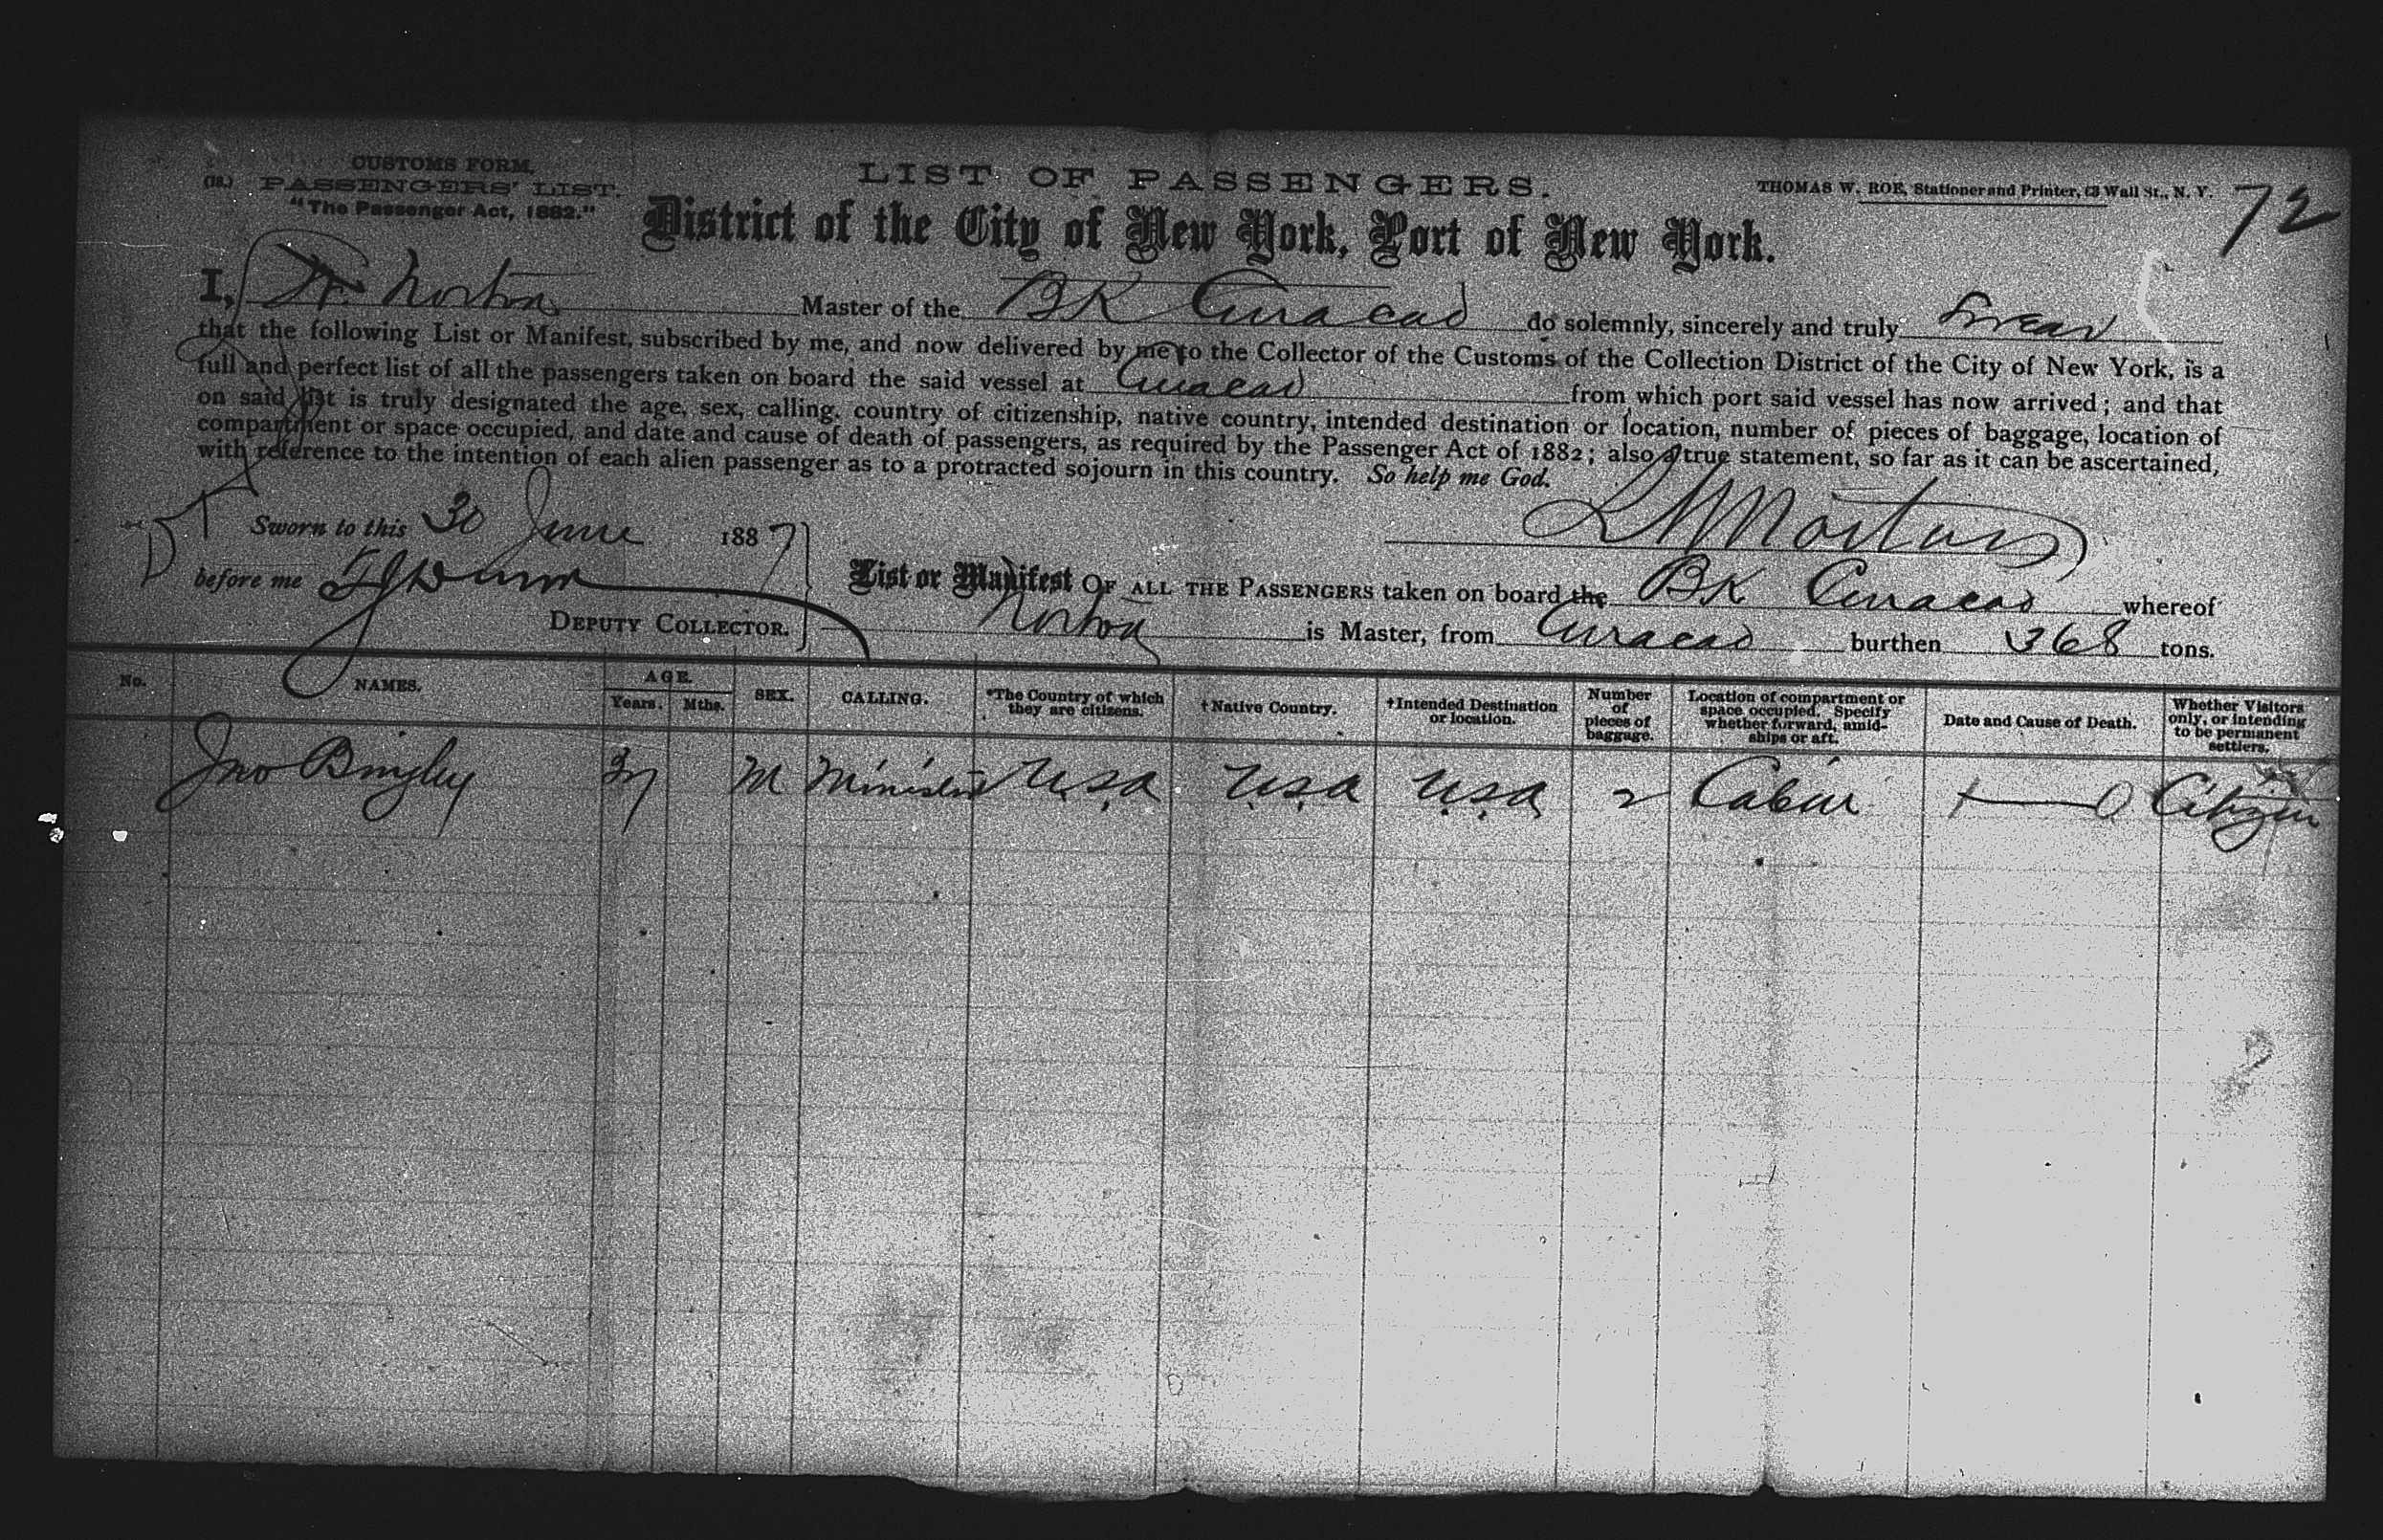 CUSTOMS FORM.
(18.) PASSENGERS' LIST.
"The Passenger Act, 1882."
LIST OF PASSENGERS.
THOMAS W. ROE, Stationer and Printer, 63 Wall St., N. Y.
72
District of the City of New York, Port of New York.
I, Norton Master of the BK Curacao do solemnly, sincerely and truly Swear
that the following List or Manifest, subscribed by me, and now delivered by me to the Collector of the Customs of the Collection District of the City of New York, is a
full and perfect list of all the passengers taken on board the said vessel at Curacao from which port said vessel has now arrived; and that
on said list is truly designated the age, sex, calling, country of citizenship, native country, intended destination or location, number of pieces of baggage, location of
compartment or space occupied, and date and cause of death of passengers, as required by the Passenger Act of 1882; also a true statement, so far as it can be ascertained,
with reference to the intention of each alien passenger as to a protracted sojourn in this country. So help me God.
Sworn to this 30 June 1887
before me
DEPUTY COLLECTOR.
List or Manifest OF ALL THE PASSENGERS taken on board the BK Curacao whereof
Norton is Master, from Curacao burthen 368 tons.
No. NAMES. AGE. Years. Mths. SEX. CALLING. *The Country of which they are citizens. †Native Country. †Intended Destination or location. Number of pieces of baggage. Location of compartment or space occupied. Specify whether forward, amidships or aft. Date and Cause of Death. Whether Visitors only, or intending to be permanent settlers.
Jno Bingley 37 M Minister U.S.A U.S.A U.S.A 2 Cabin Citizen